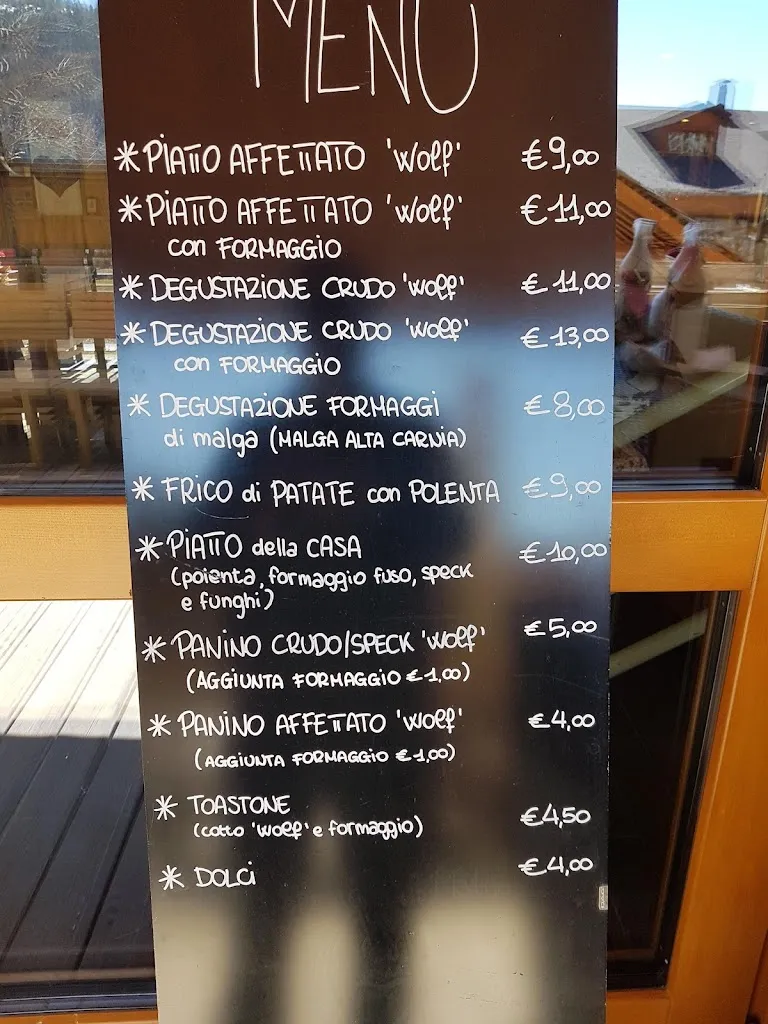 MENÙ
* PIATTO AFFETTATO 'Wolf' €9,00
* PIATTO AFFETTATO 'Wolf' €11,00
con FORMAGGIO
* DEGUSTAZIONE CRUDO 'Wolf' €11,00
* DEGUSTAZIONE CRUDO 'Wolf' €13,00
con FORMAGGIO
* DEGUSTAZIONE FORMAGGI €8,00
di malga (MALGA ALTA CARNIA)
* FRICO di PATATE con POLENTA €9,00
* PIATTO della CASA €10,00
(polenta, formaggio fuso, speck
e funghi)
* PANINO CRUDO/SPECK 'Wolf' €5,00
(AGGIUNTA FORMAGGIO €1,00)
* PANINO AFFETATO 'Wolf' €4,00
(AGGIUNTA FORMAGGIO €1,00)
* TOASTONE €4,50
(cotto 'Wolf' e formaggio)
* DOLCI €4,00